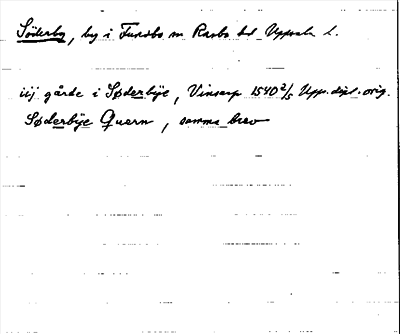 Söderby, by i Funbo sn Rasbo hd Uppsala l.
iij gårde i Søderbÿe, Vinsarp 1540 2/5 Upp. dipl. orig.
Søderbÿe Quarn, samma brev